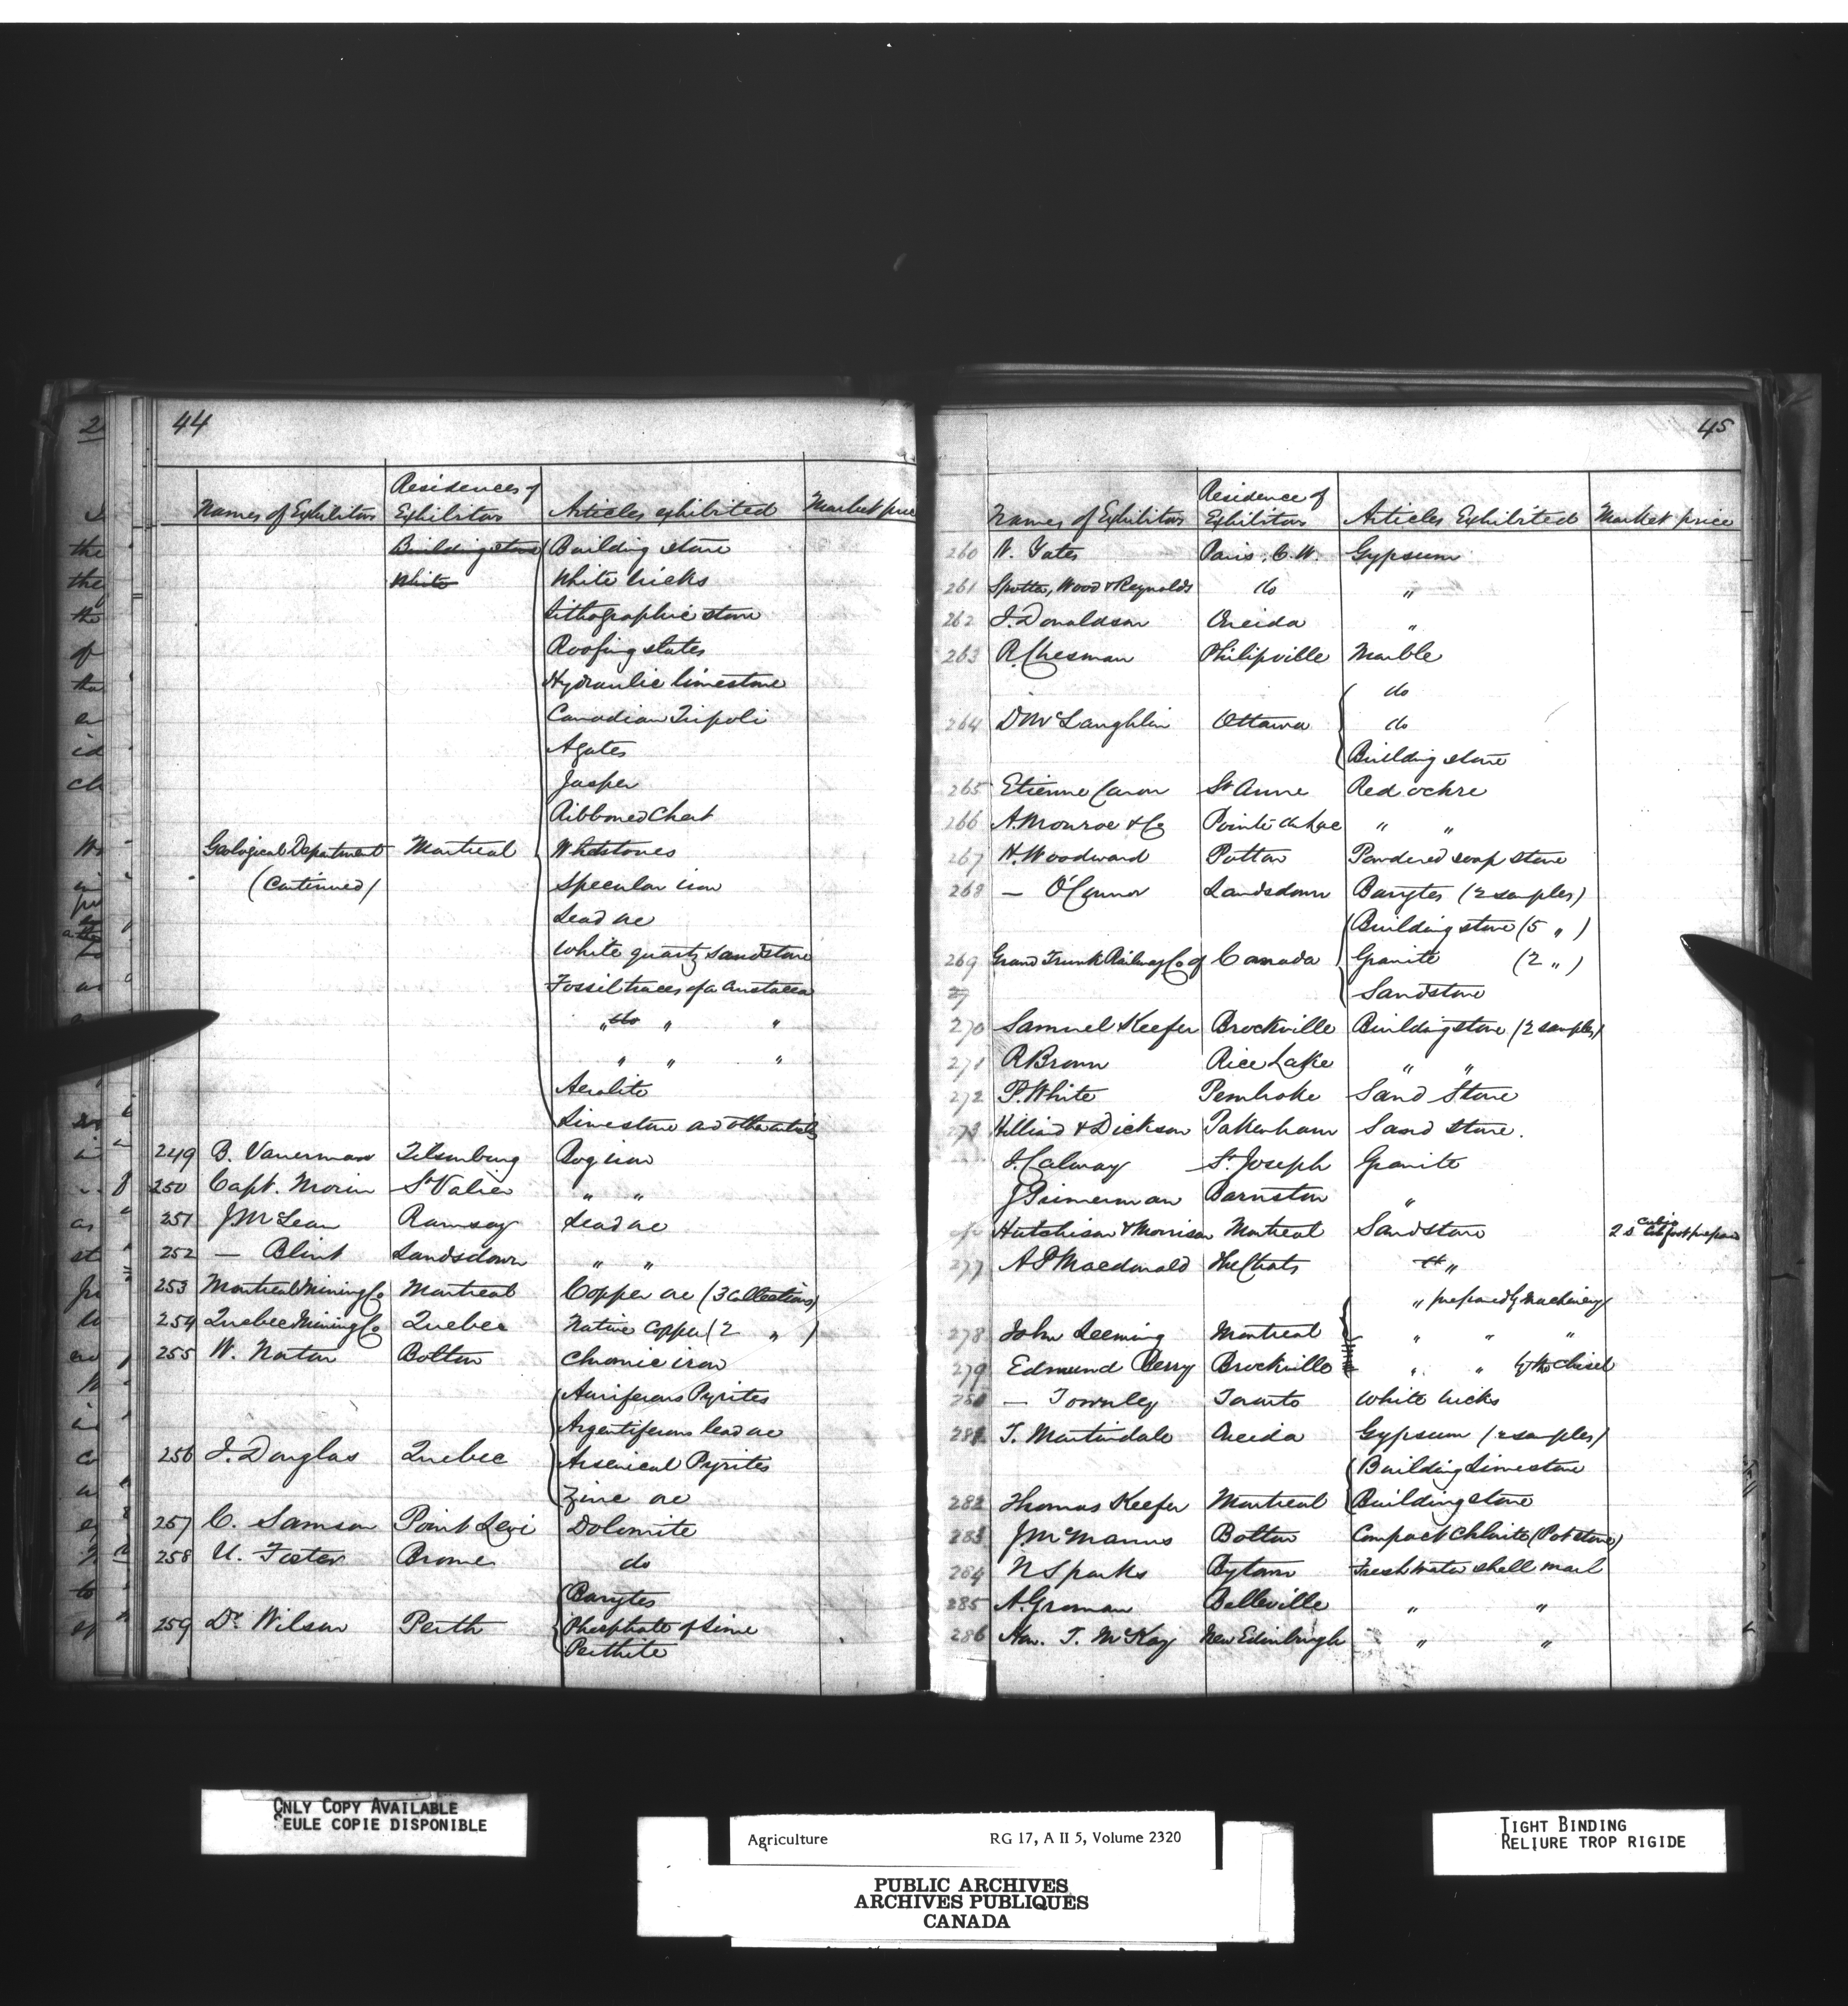 44
Names of Exhibitors Residences of Exhibitors Articles exhibited Market price
Building stone Building stone
White White bricks
Lithographic stone
Roofing slates
Hydraulic limestone
Canadian Tripoli
Agates
Jasper
Ribboned Chert
Geological Department Montreal Whetstones
(Continued) Specular iron
Lead ore
White quartz sandstone
Fossil traces of a crustacea
" do " "
" " "
Aerolite
Limestone and other articles
249 B. Vanerman Tilsonburg Bog iron
250 Capt. Morin St Valier " "
251 J McLean Ramsay Lead ore
252 — Blink Landsdown " "
253 Montreal Mining Co Montreal Copper ore (3 Collections)
254 Quebec Mining Co Quebec Native Copper (2 " )
255 W. Norton Bolton Chromic iron
Auriferous Pyrites
Argentiferous lead ore
256 J. Douglas Quebec Arsenical Pyrites
Zinc ore
257 C. Samson Point Levi Dolomite
258 U. Foster Brome do
Barytes
259 Dr Wilson Perth Phosphate of Lime
Perthite
45
Names of Exhibitors Residence of Exhibitors Articles Exhibited Market price
260 W. Yates Paris, C.W. Gypsum
261 Spotten, Wood & Reynolds do "
262 J. Donaldson Oneida "
263 R. Chesman Philipville Marble
do
264 D McLaughlin Ottawa do
Building stone
265 Etienne Caron St Anne Red ochre
266 A. Monroe & Co Pointe du Lac " "
267 H. Woodward Potton Powdered soap stone
268 — O'Connor Landsdown Barytes (2 samples)
Building stone (5 " )
269 Grand Trunk Railway Co of Canada Granite (2 " )
27 Sandstone
270 Samuel Keefer Brockville Building stone (2 samples)
271 R Brown Rice Lake " "
272 P. White Pembroke Sand Stone
273 Hilliard & Dickson Pakenham Sand stone.
J. Calway St. Joseph Granite
J Primerman Barnston "
Hutchison & Morrison Montreal Sandstone 2 s cubic foot prepared
277 A P Macdonald The Chats "
" prepared by Machinery
278 John Leeming Montreal " " "
279 Edmund Berry Brockville " " by the chisel
280 — Townley Toronto White bricks
281 T. Martindale Oneida Gypsum (2 samples)
Building Limestone
282 Thomas Keefer Montreal Building stone
283 J McManus Bolton Compact Chlorite (Potstone)
284 N Sparks Bytown Fresh water shell marl
285 A. Groman Belleville " "
286 Hon. T. McKay New Edinburgh " "
ONLY COPY AVAILABLE
SEULE COPIE DISPONIBLE
Agriculture RG 17, A II 5, Volume 2320
PUBLIC ARCHIVES
ARCHIVES PUBLIQUES
CANADA
TIGHT BINDING
RELIURE TROP RIGIDE